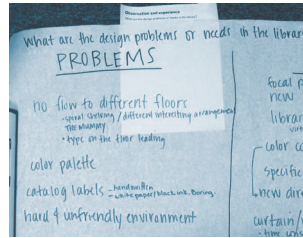 Observation and experience
What are the design problems or needs in the library
PROBLEMS
no flow to different floors
- spiral shelving / different interesting arrangement
The Mummy
• type on the floor leading
color palette
catalog labels - handwritten
- white paper/black ink. Boring.
hard & unfriendly environment
focal p
new
librar
color co
specific
new dire
curtain/